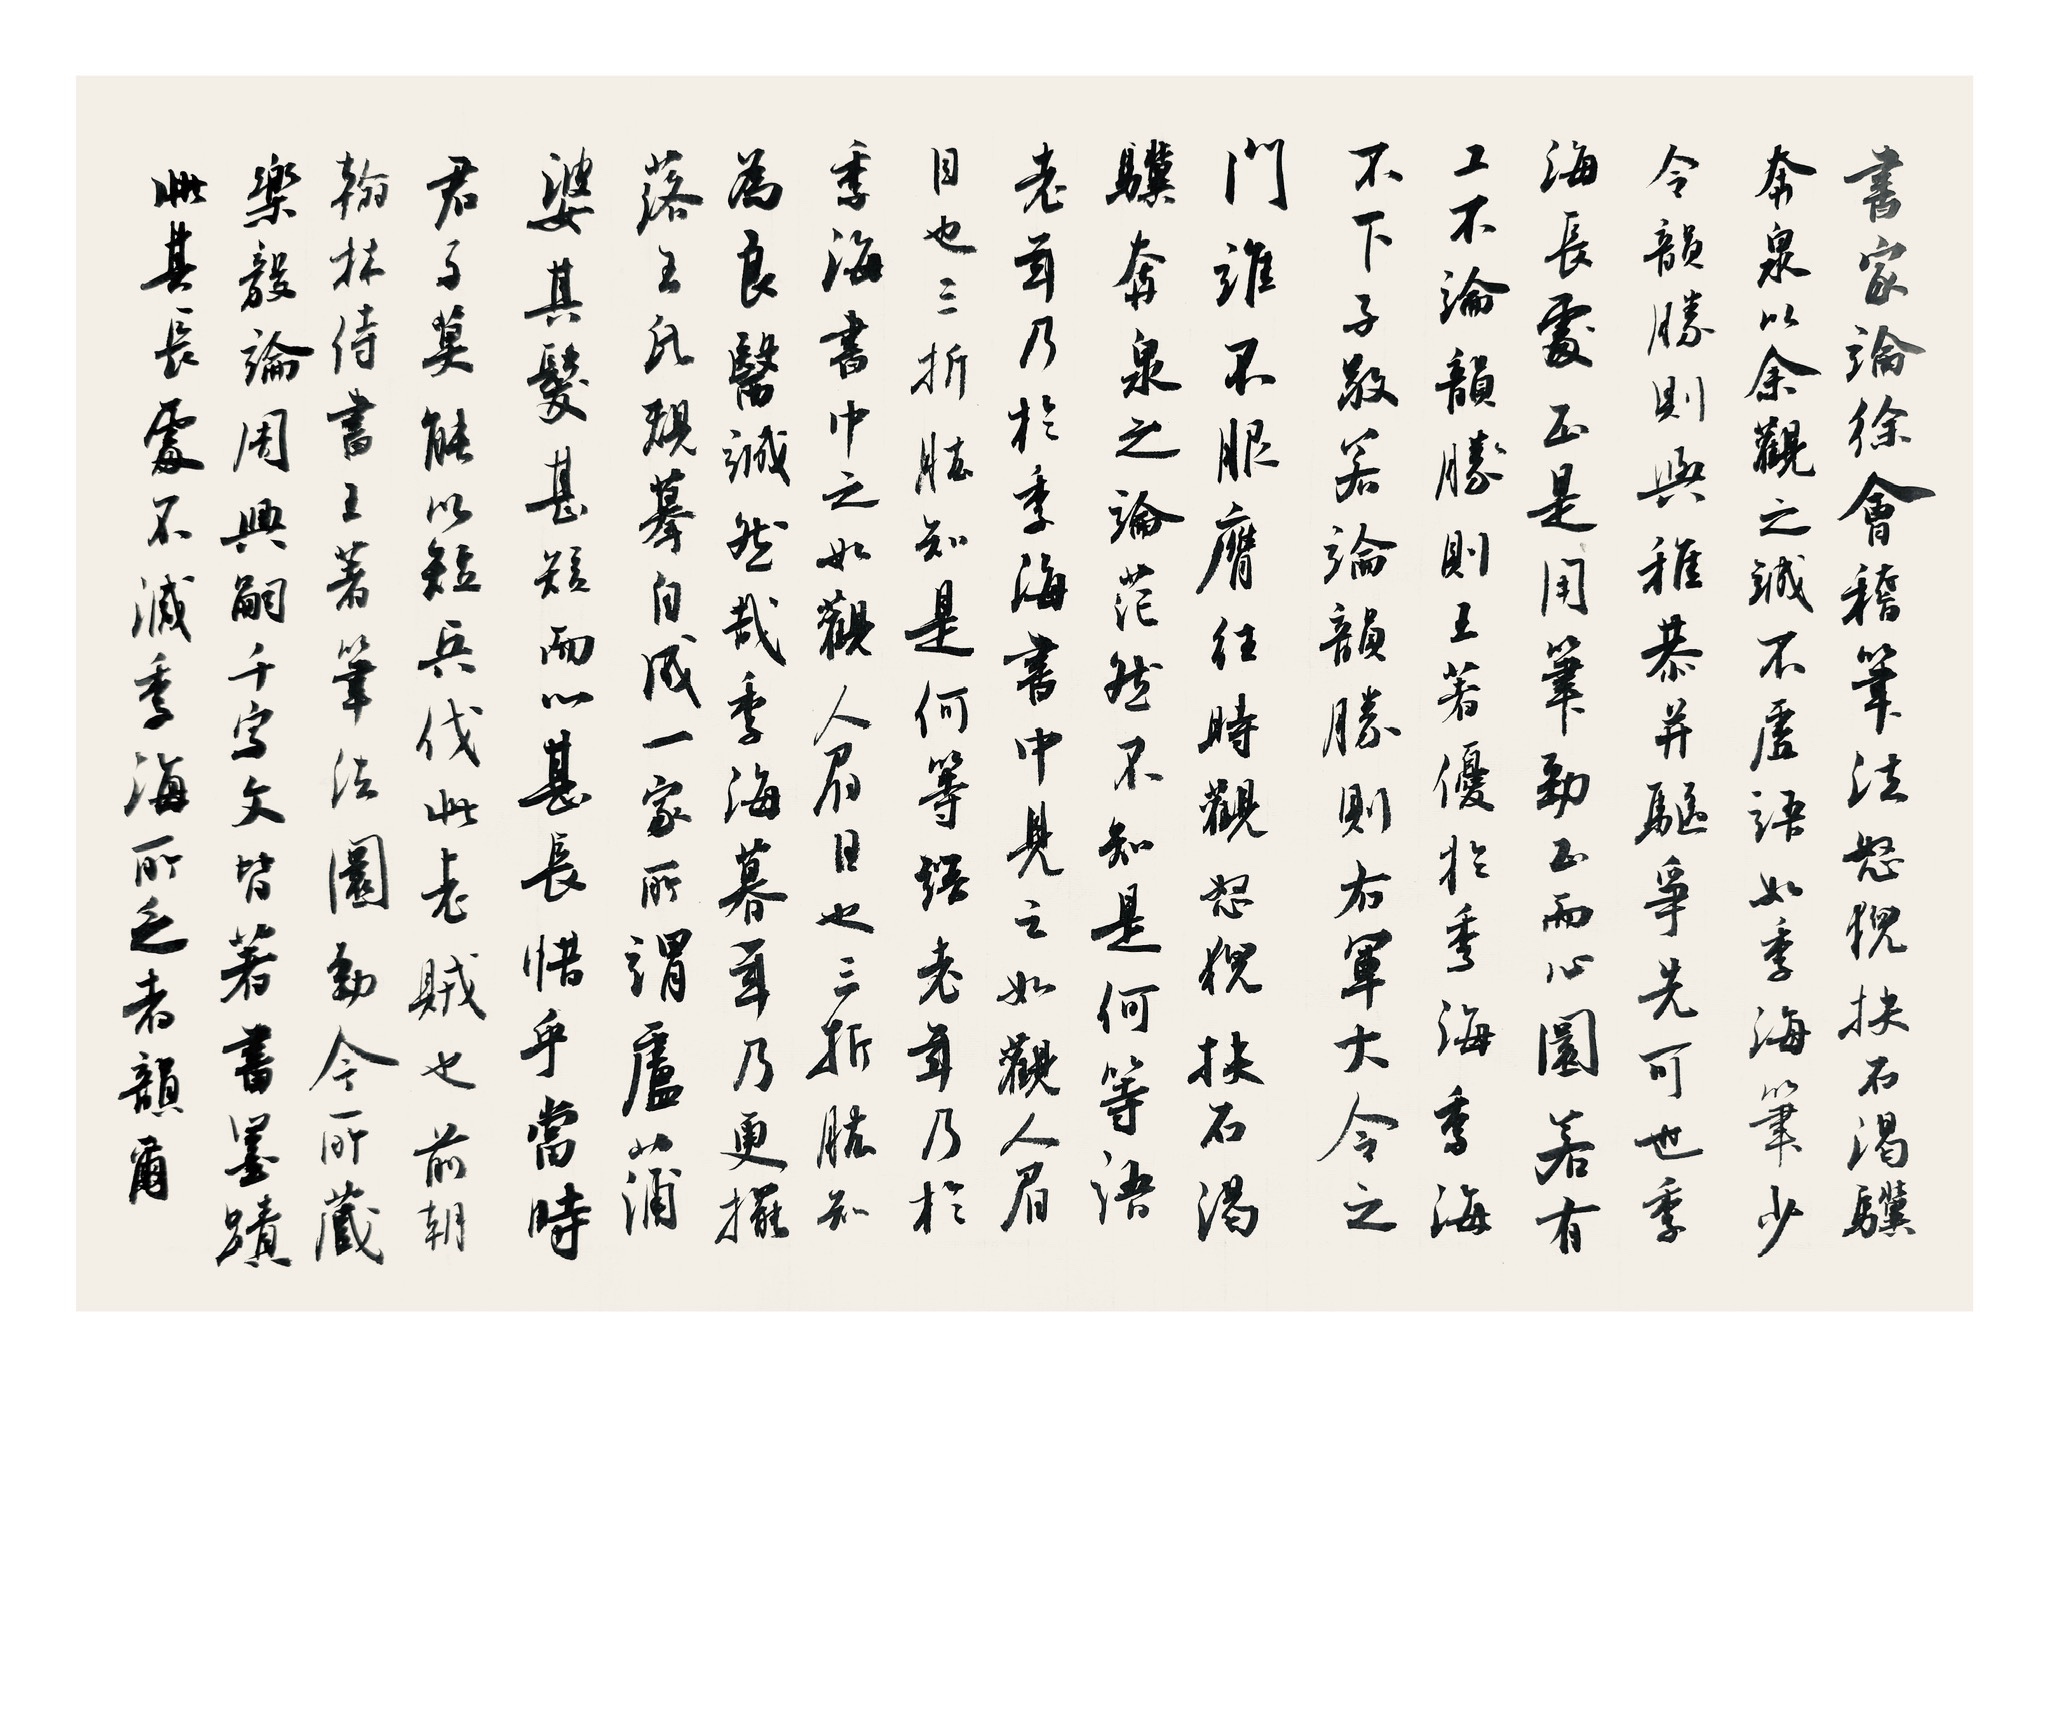 書家論徐會稽筆法怒猊抉石渴驥
奔泉以余觀之誠不虛語如季海筆少
令韻勝則與稚恭并驅爭先可也季
海長處正是用筆勁正而心圓若有
工不論韻勝則王著優於季海季海
不下子敬若論韻勝則右軍大令之
門誰不服膺往時觀怒猊抉石渴
驥奔泉之論茫然不知是何等語
老著乃於季海書中見之如觀人眉
目也三折肱知是何等語老著乃於
季海書中之如觀人眉目也三折肱知
為良醫誠然哉季海暮著乃更擺
落王氏規摹自成一家所謂盧蒲
婆其髮甚短而心甚長惜乎當時
君子莫能以短兵伐此老賊也前朝
翰林侍書王著筆法圓勁今所藏
樂毅論周興嗣千字文皆著書墨蹟
此其長處不減季海所乏者韻爾